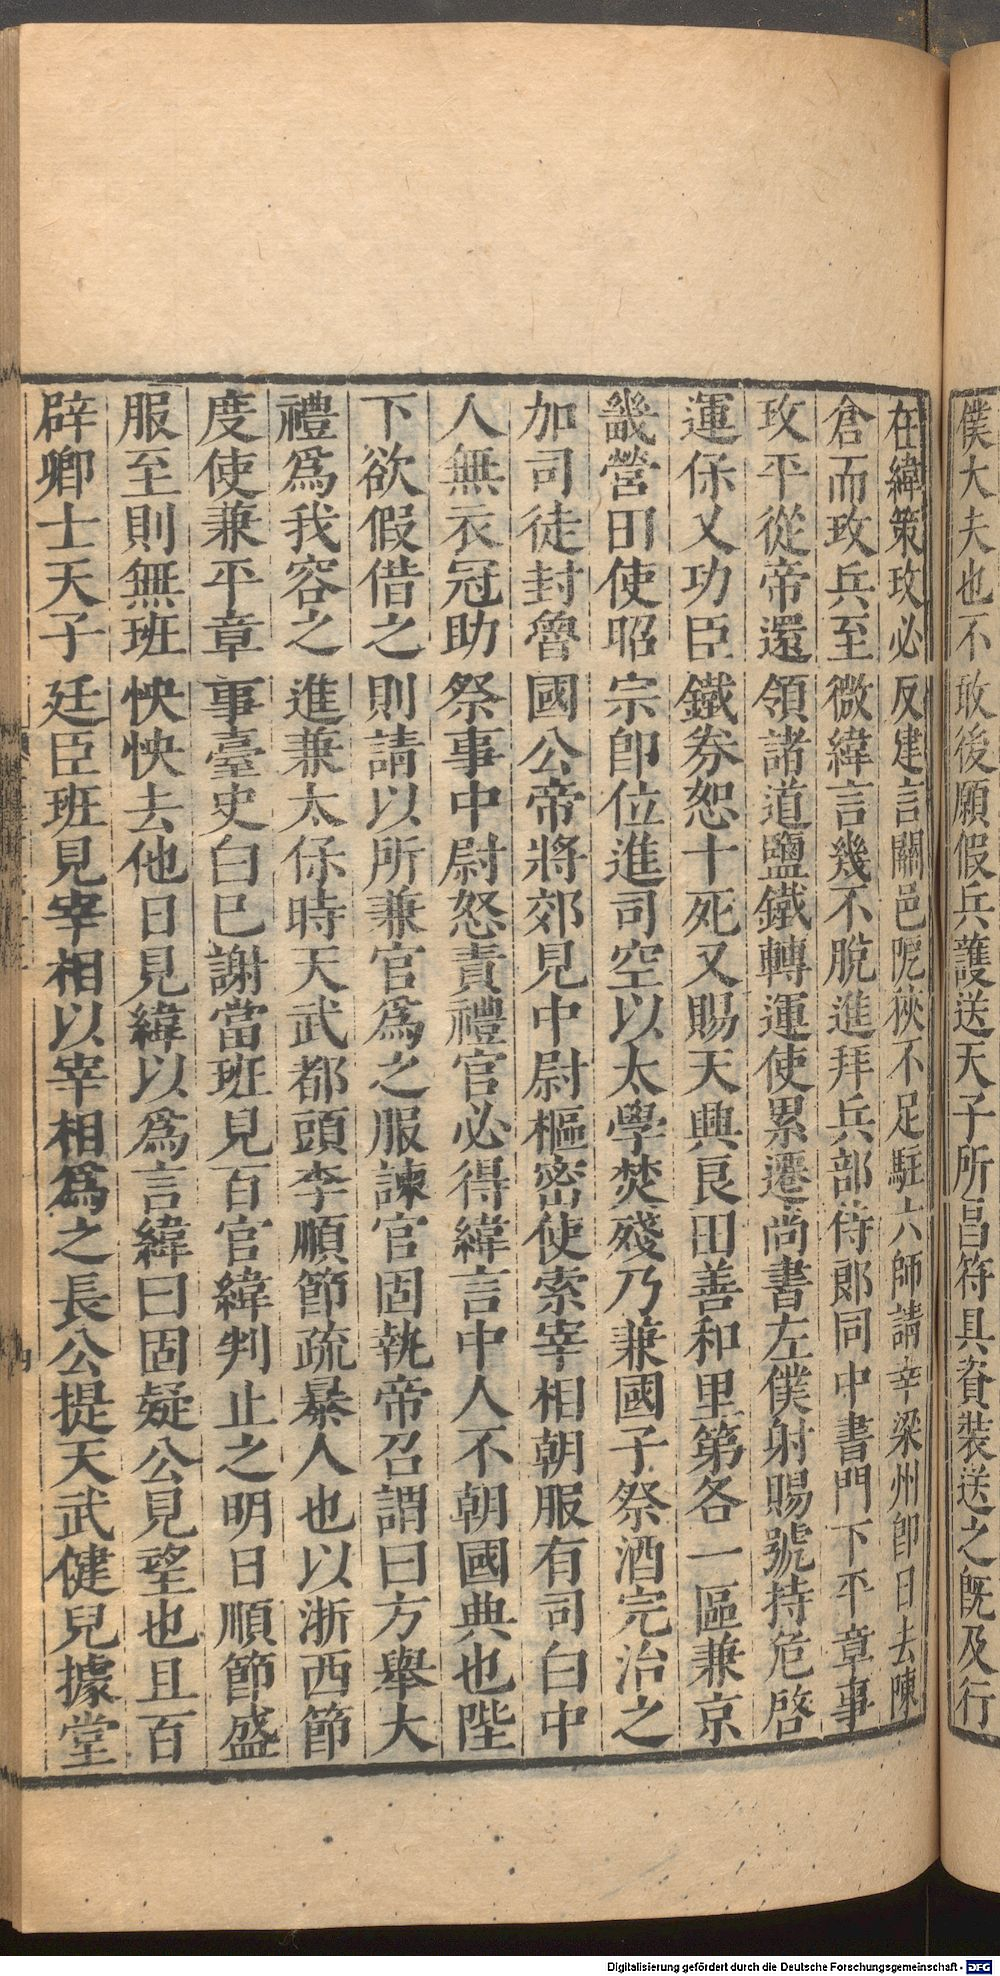 僕大夫也不敢後願假兵護送天子所昌符具資裝送之旣及行
在緯策玫必反建言關邑阨狹不足駐六師請幸梁州卽日去陳
倉而玫兵至微緯言幾不脫進拜兵部侍郞同中書門下平章事
玫平從帝還領諸道鹽鐵轉運使累遷尚書左僕射賜號持危啓
運保乂功臣鐵券恕十死又賜天興良田善和里第各一區兼京
畿營田使昭宗卽位進司空以太學焚殘乃兼國子祭酒完治之
加司徒封魯國公帝將郊見中尉樞密使索宰相朝服有司白中
人無衣冠助祭事中尉怒責禮官必得緯言中人不朝國典也陛
下欲假借之則請以所兼官爲之服諫官固執帝召謂曰方舉大
禮爲我容之進兼太保時天武都頭李順節疏暴人也以浙西節
度使兼平章事臺史白已謝當班見百官緯判止之明日順節盛
服至則無班怏怏去他日見緯以爲言緯曰固疑公見望也且百
辟卿士天子廷臣班見宰相以宰相爲之長公提天武健兒據堂
Digitalisierung gefördert durch die Deutsche Forschungsgemeinschaft - DFG